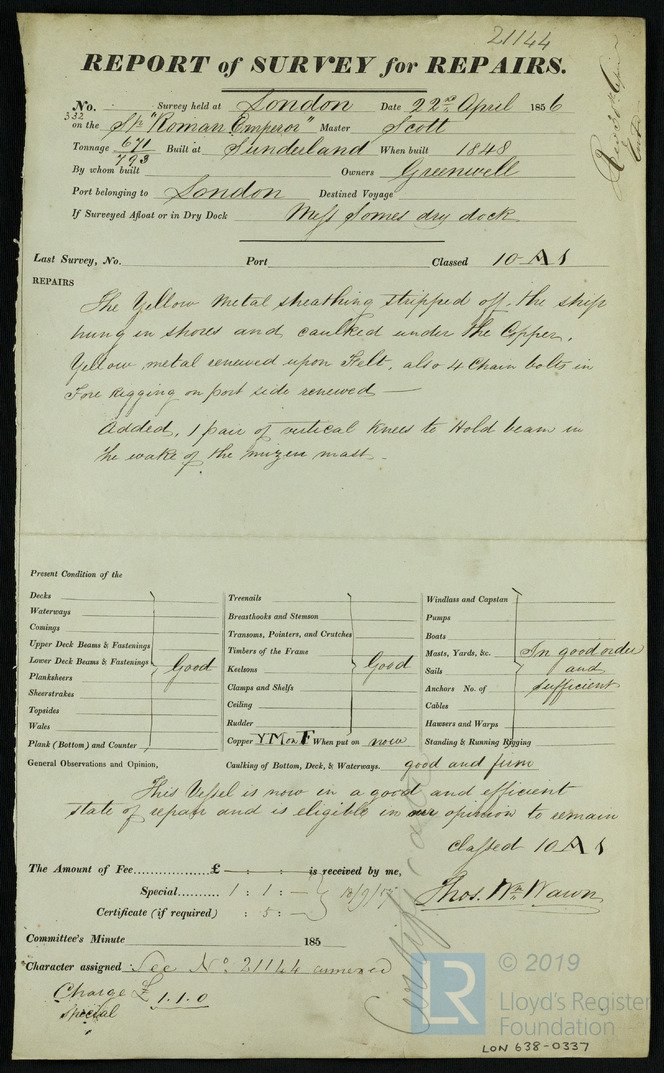 21144
REPORT of SURVEY for REPAIRS.
No. Survey held at London Date 22nd April 1856
332 on the Ship "Roman Emperor" Master Scott
Tonnage 671/793 Built at Sunderland When built 1848
By whom built Owners Greenwell
Port belonging to London Destined Voyage
If Surveyed Afloat or in Dry Dock Messrs Somes dry dock
Last Survey, No. Port Classed 10 A 1
REPAIRS
The Yellow Metal sheathing stripped off. The ship
hung in shores and caulked under the Copper.
Yellow metal renewed upon Felt, also 4 Chain bolts in
Fore Rigging on port side renewed —
Added, 1 pair of vertical Knees to Hold beam in
the wake of the mizen mast.
Present Condition of the
Decks
Waterways
Comings
Upper Deck Beams & Fastenings
Lower Deck Beams & Fastenings Good
Planksheers
Sheerstrakes
Topsides
Wales
Plank (Bottom) and Counter
Treenails
Breasthooks and Stemson
Transoms, Pointers, and Crutches
Timbers of the Frame
Keelsons Good
Clamps and Shelfs
Ceiling
Rudder
Copper YM on F When put on now
Windlass and Capstan
Pumps
Boats
Masts, Yards, &c. In good order
Sails and
Anchors No. of sufficient
Cables
Hawsers and Warps
Standing & Running Rigging
General Observations and Opinion, Caulking of Bottom, Deck, & Waterways. good and firm
This Vessel is now in a good and efficient
state of repair and is eligible in our opinion to remain
classed 10 A 1
The Amount of Fee £ — : — : — is received by me,
Special 1 : 1 : —
Certificate (if required) : 5 : —
Thos. Wm Wawn
Committee's Minute 185
Character assigned See No. 21144 annexed
Charge £ 1.1.0
special
Certificate
LR
© 2019
Lloyd's Register
Foundation
LON 638-0337